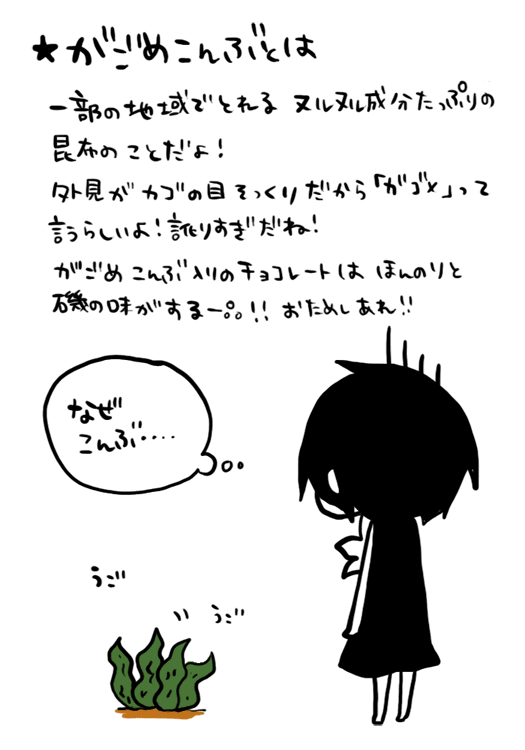 ★がごめこんぶとは
一部の地域でとれる ヌルヌル成分たっぷりの
昆布のことだよ!
外見がカゴの目そっくりだから「ガゴメ」って
言うらしいよ!訛りすぎだね!
がごめこんぶ入りのチョコレートは ほんのりと
磯の味がするー。。!! おためしあれ!!
なぜ
こんぶ....
うご
うご